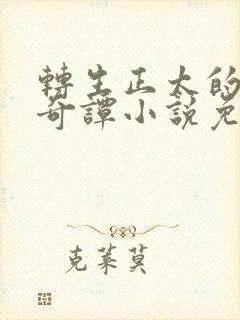 轉生正太的
奇譚小說免
克萊莫